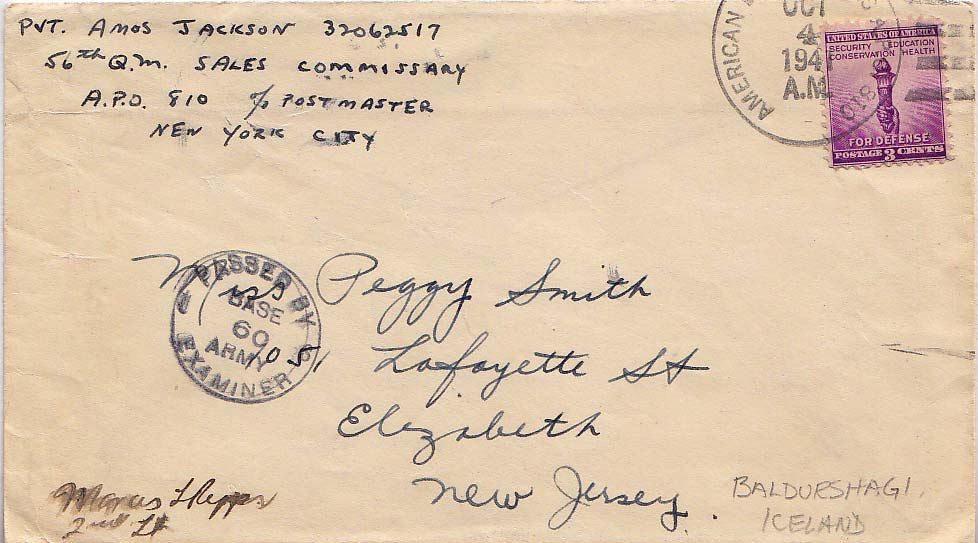 PVT. AMOS JACKSON 32062517
56th Q.M. SALES COMMISSARY
A.P.O. 810 c/o POSTMASTER
NEW YORK CITY
AMERICAN
OCT
4
194
A.M.
810
UNITED STATES OF AMERICA
SECURITY EDUCATION
CONSERVATION HEALTH
FOR DEFENSE
POSTAGE 3 CENTS
PASSED BY
BASE
60
ARMY
EXAMINER
Miss Peggy Smith
1051 Lafayette St
Elizabeth
New Jersey.
2nd Lt
BALDURSHAGI,
ICELAND